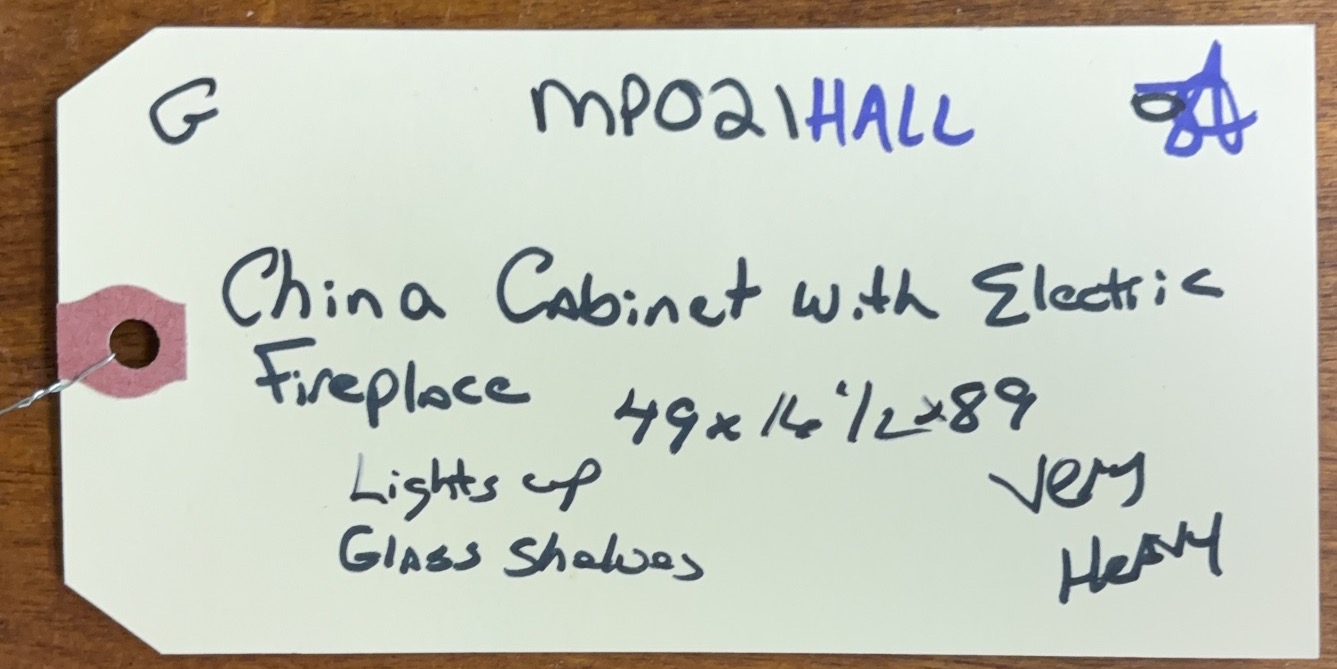 G MPO21HALL
China Cabinet with Electric
Fireplace 49x16 1/2x89
Lights up Very
Glass Shelves Heavy